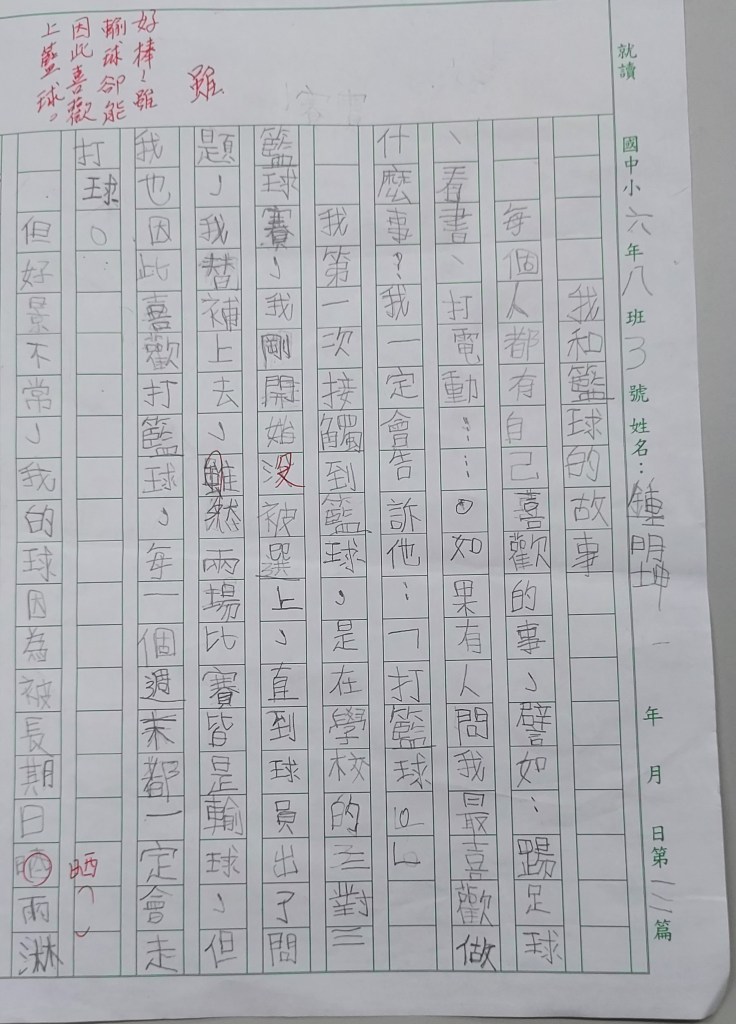 就讀 國中小六年八班3號姓名：鍾明坤 一 年 月 日第一二篇
我和籃球的故事
每個人都有自己喜歡的事，譬如：踢足球
、看書、打電動……。如果有人問我最喜歡做
什麼事？我一定會告訴他：「打籃球。」
我第一次接觸到籃球，是在學校的三對三
籃球賽，我剛開始沒被選上，直到球員出了問
題，我替補上去，雖然兩場比賽皆是輸球，但
我也因此喜歡打籃球，每一個週末都一定會走
打球。
但好景不常，我的球因為被長期日晒雨淋
晒
雖
好棒～雖
輸球卻能
因此喜歡
上籃球。